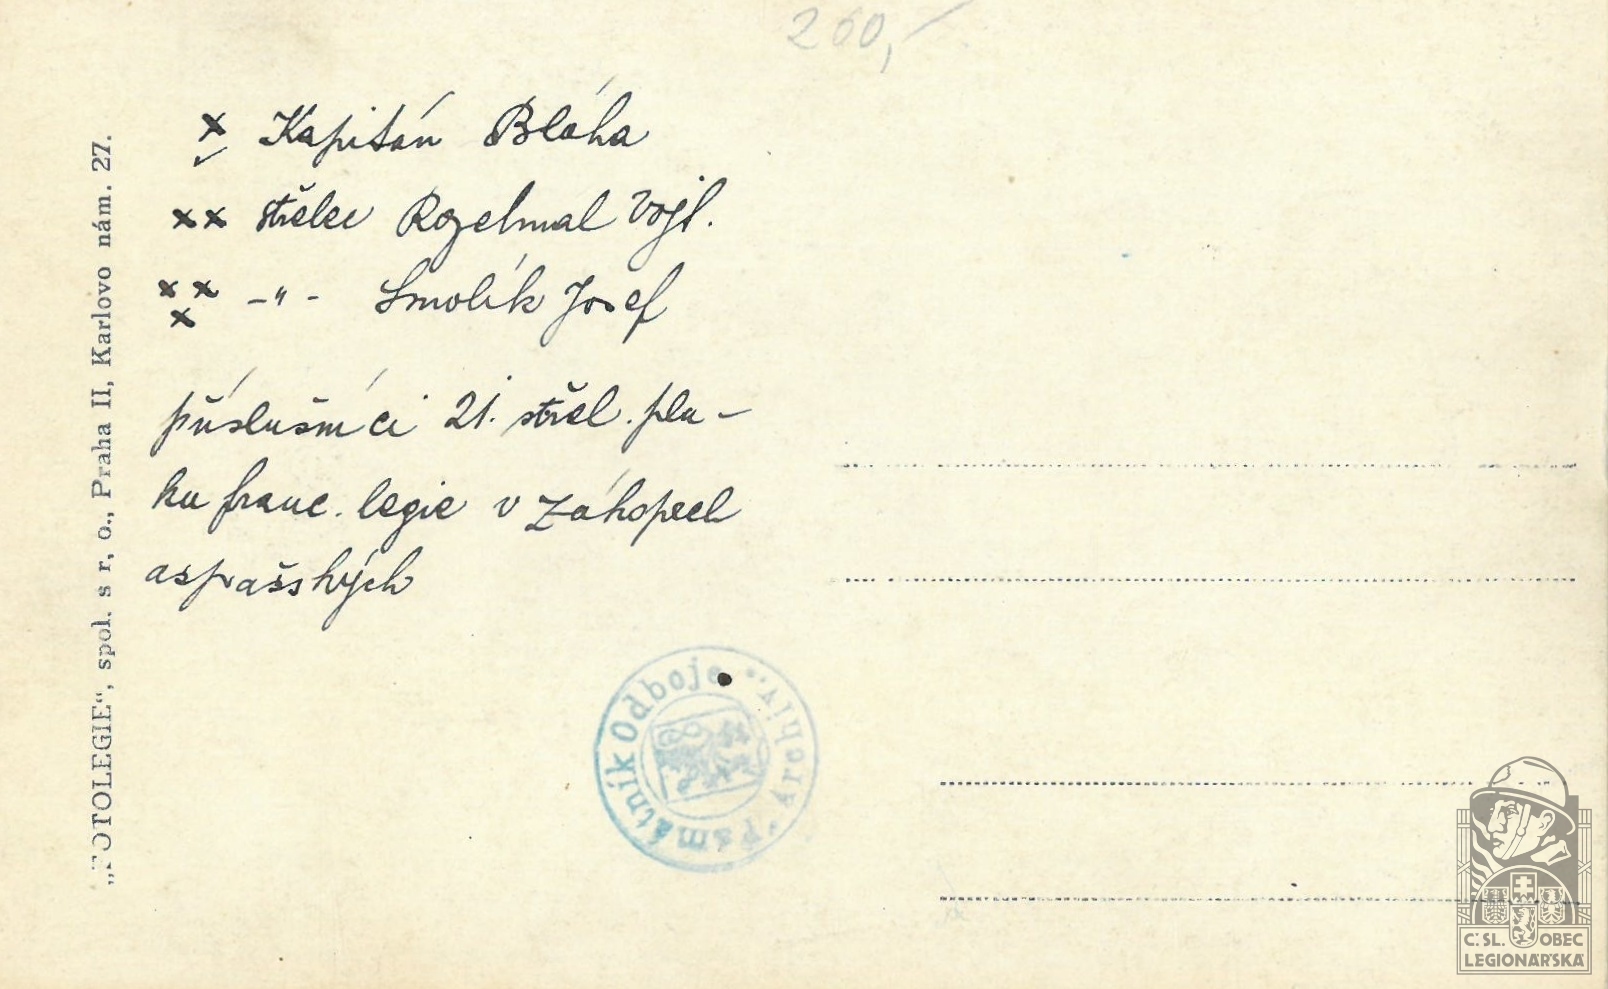 260,-
x Kapitán Bláha
xx střelec Rozelmal Vojt.
xxx -"- Smolík Josef
příslušníci 21. střel. plu-
ku franc. legie v Záhopech
asprašských
„FOTOLEGIE“, spol. s r. o., Praha II, Karlovo nám. 27.
Památník Odboje "Archiv"
Č. SL. OBEC
LEGIONÁŘSKÁ